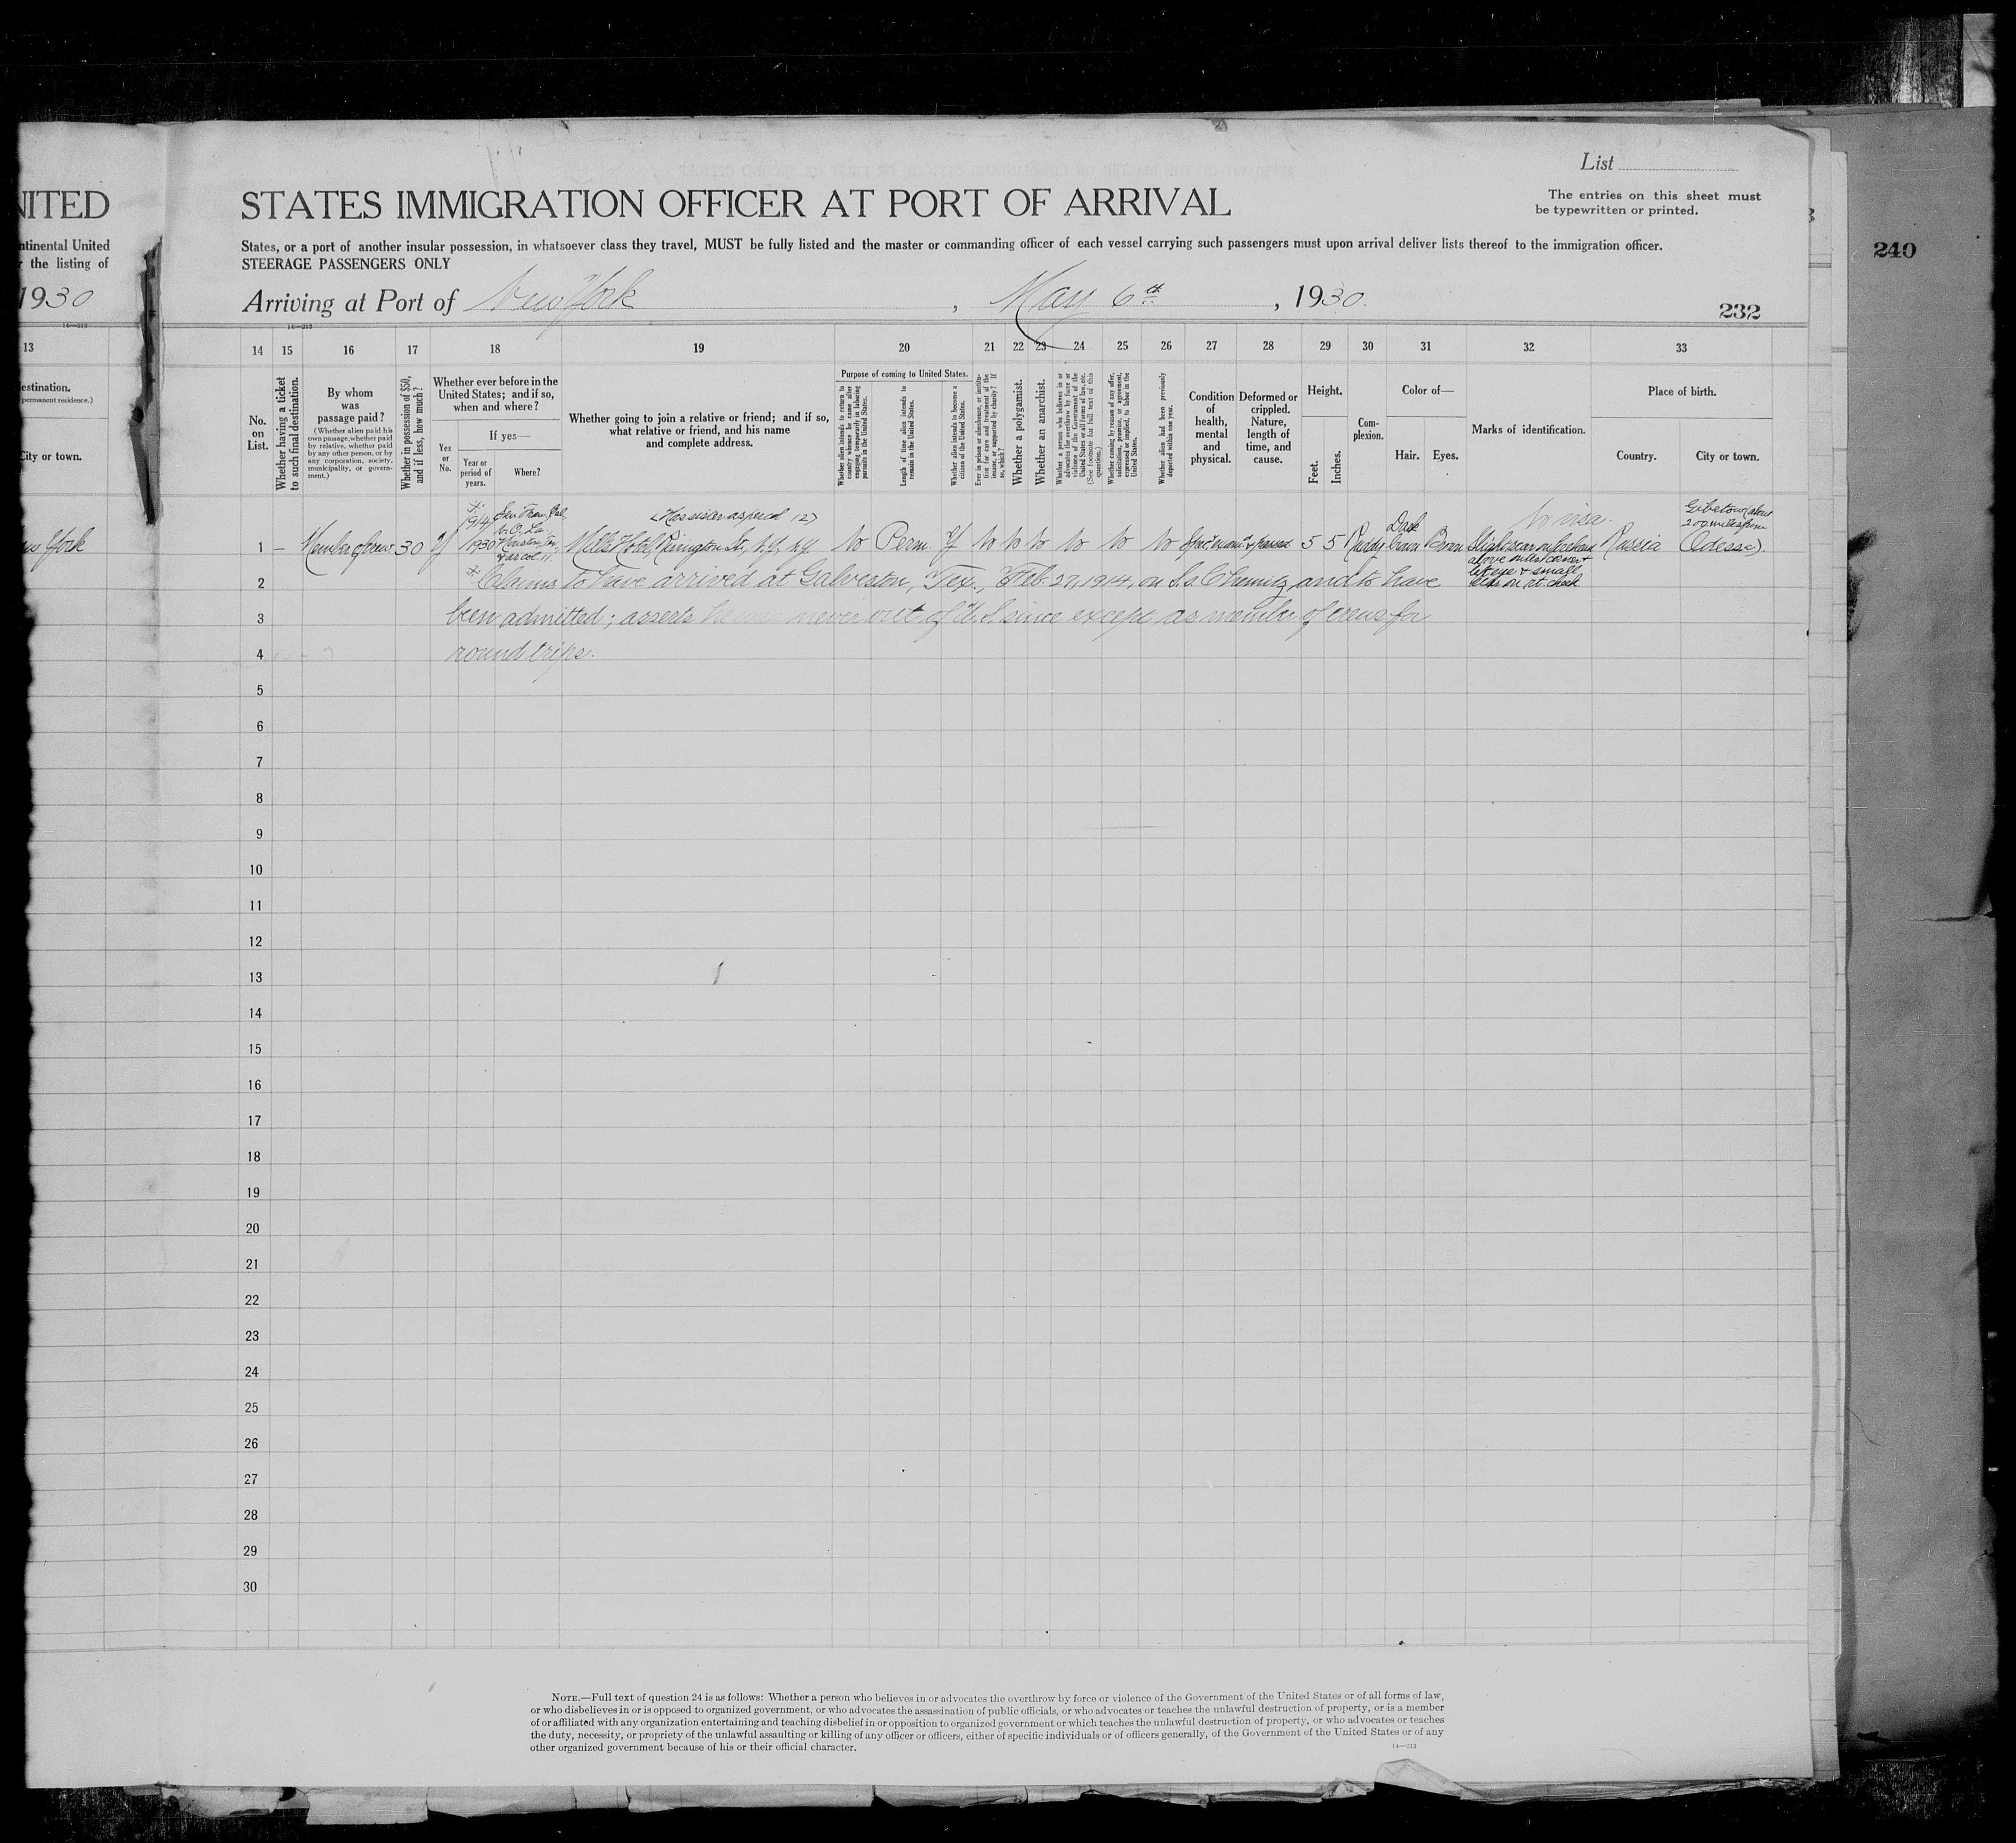 List
NITED
STATES IMMIGRATION OFFICER AT PORT OF ARRIVAL
The entries on this sheet must
be typewritten or printed.
240
ntinental United
States, or a port of another insular possession, in whatsoever class they travel, MUST be fully listed and the master or commanding officer of each vessel carrying such passengers must upon arrival deliver lists thereof to the immigration officer.
the listing of
STEERAGE PASSENGERS ONLY
1930
Arriving at Port of New York, May 6th, 1930.
232
14—213
14—213
13 14 15 16 17 18 19 20 21 22 23 24 25 26 27 28 29 30 31 32 33
estination.
permanent residence.)
City or town.
No.
on
List.
Whether having a ticket
to such final destination.
By whom
was
passage paid?
(Whether alien paid his
own passage, whether paid
by relative, whether paid
by any other person, or by
any corporation, society,
municipality, or govern-
ment.)
Whether in possession of $50,
and if less, how much?
Whether ever before in the
United States; and if so,
when and where?
Yes
or
No.
If yes—
Year or
period of
years.
Where?
Whether going to join a relative or friend; and if so,
what relative or friend, and his name
and complete address.
Purpose of coming to United States.
Whether alien intends to return to
country whence he came after
engaging temporarily in laboring
pursuits in the United States.
Length of time alien intends to
remain in the United States.
Whether alien intends to become a
citizen of the United States.
Ever in prison or almshouse, or institu-
tion for care and treatment of the
insane, or supported by charity? If
so, which?
Whether a polygamist.
Whether an anarchist.
Whether a person who believes in or
advocates the overthrow by force or
violence of the Government of the
United States or all forms of law, etc.
(See footnote for full text of this
question.)
Whether coming by reason of any offer,
solicitation, promise, or agreement,
expressed or implied, to labor in the
United States.
Whether alien had been previously
deported within one year.
Condition
of
health,
mental
and
physical.
Deformed or
crippled.
Nature,
length of
time, and
cause.
Height.
Feet.
Inches.
Com-
plexion.
Color of—
Hair. Eyes.
Marks of identification.
Place of birth.
Country.
City or town.
New York
1 — Member of crew 30 Y
* 1914
1930
San Fran. Cal,
N.O., La.
Houston, Tex.
(Has sister as per col 12)
Mills Hotel, Rivington St., N.Y., N.Y.
No Perm. Y No No No No No No Spec. exam. & passed 5 5 Ruddy Dark brown Brown
No visa.
Slight scar on forehead
left eye & small
on rt. cheek
Russia
(about
200 miles from
Odessa).
2 * Claims to have arrived at Galveston, Tex., Feb. 27, 1914, on S.S. Chemnitz, and to have
3 been admitted; asserts he was never out of U.S. since except as member of crews for
4 round trips.
5
6
7
8
9
10
11
12
13
14
15
16
17
18
19
20
21
22
23
24
25
26
27
28
29
30
NOTE.—Full text of question 24 is as follows: Whether a person who believes in or advocates the overthrow by force or violence of the Government of the United States or of all forms of law,
or who disbelieves in or is opposed to organized government, or who advocates the assassination of public officials, or who advocates or teaches the unlawful destruction of property, or is a member
of or affiliated with any organization entertaining and teaching disbelief in or opposition to organized government or which teaches the unlawful destruction of property, or who advocates or teaches
the duty, necessity, or propriety of the unlawful assaulting or killing of any officer or officers, either of specific individuals or of officers generally, of the Government of the United States or of any
other organized government because of his or their official character.
14—213